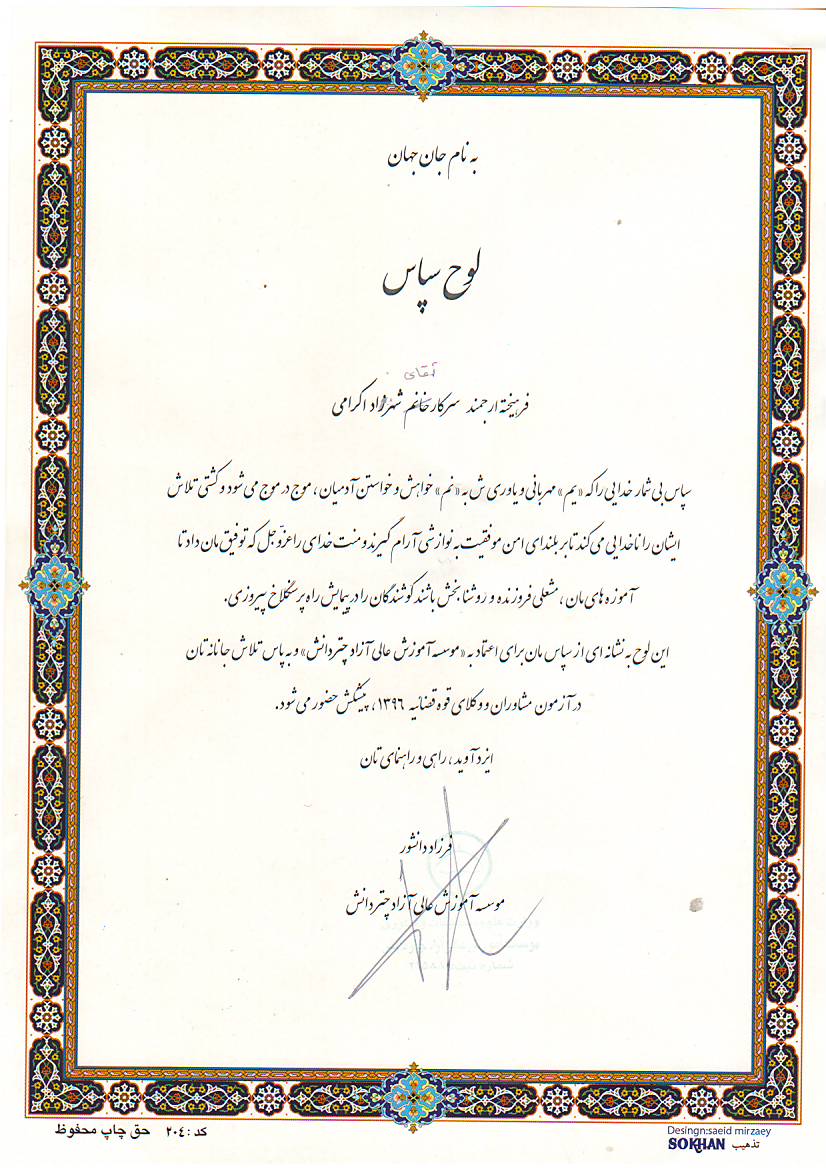 به نام جان جهان
لوح سپاس
آقای
فرهیخته ارجمند سرکار خانم شهرزاد اکرامی
سپاس بی شمار خدایی را که «یم» مهربانی و یاوری ش به «نم» خواهش و خواستن آدمیان، موج در موج می شود و کشتی تلاش
ایشان را ناخدایی می کند تا بر بلندای امن موفقیت به نوازشی آرام گیرند و منت خدای را عزّوجل که توفیق مان داد تا
آموزه های مان، مشعلی فروزنده و روشنا بخش باشند کوشندگان را در پیمایش راه پر سنگلاخ پیروزی.
این لوح به نشانه ای از سپاس مان برای اعتماد به «موسسه آموزش عالی آزاد چتر دانش» و به پاس تلاش جانانه تان
در آزمون مشاوران و وکلای قوه قضائیه ۱۳۹۶، پیشکش حضور می شود.
ایزد آوید، راهی و راهنمای تان
فرزاد دانشور
موسسه آموزش عالی آزاد چتر دانش
کد: ۲۰۴ حق چاپ محفوظ
Desingn:saeid mirzaey
SOKHAN تذهیب